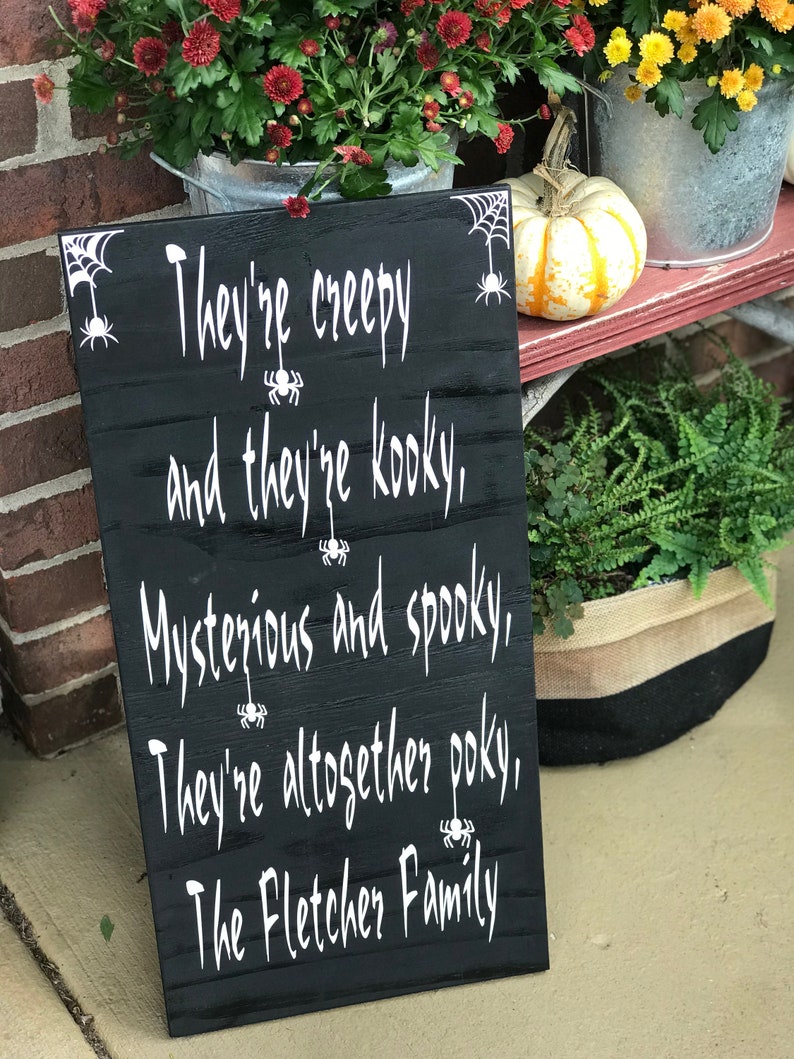 They're creepy
and they're kooky,
Mysterious and spooky,
They're altogether poky,
The Fletcher Family